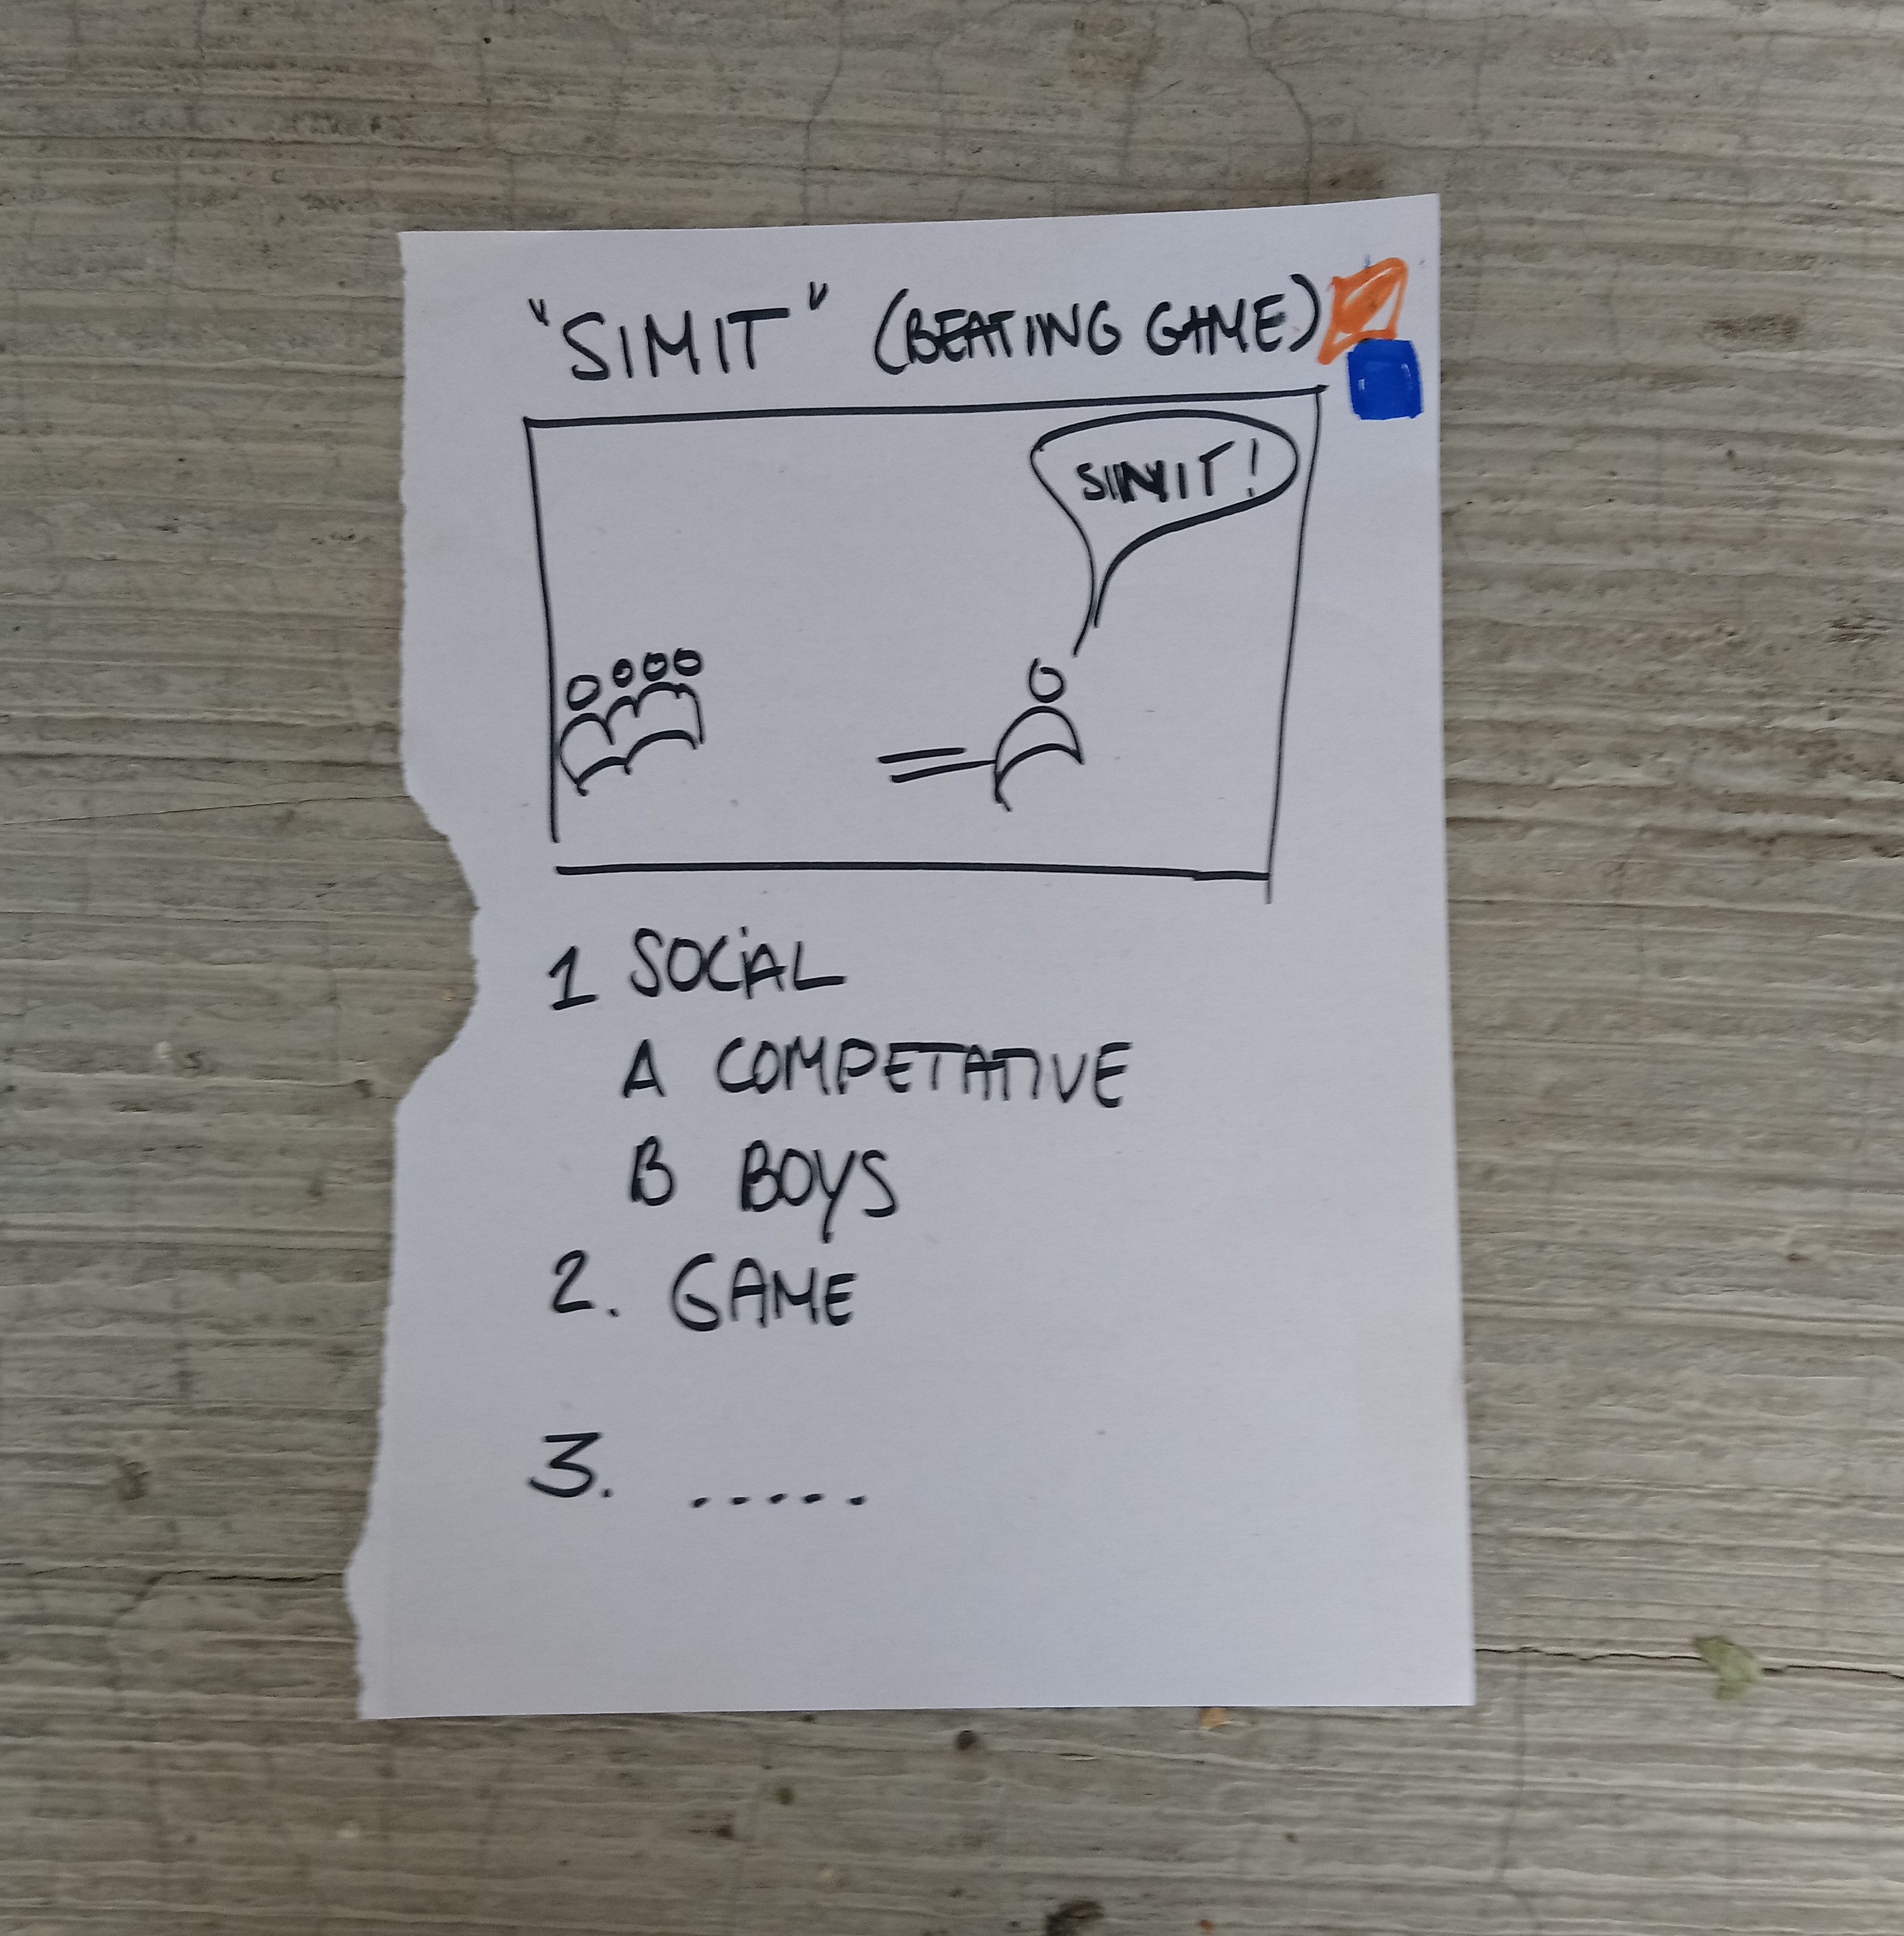 "SIMIT" (BEATING GAME)
SIMIT!
1 SOCIAL
A COMPETATIVE
B BOYS
2. GAME
3. .....